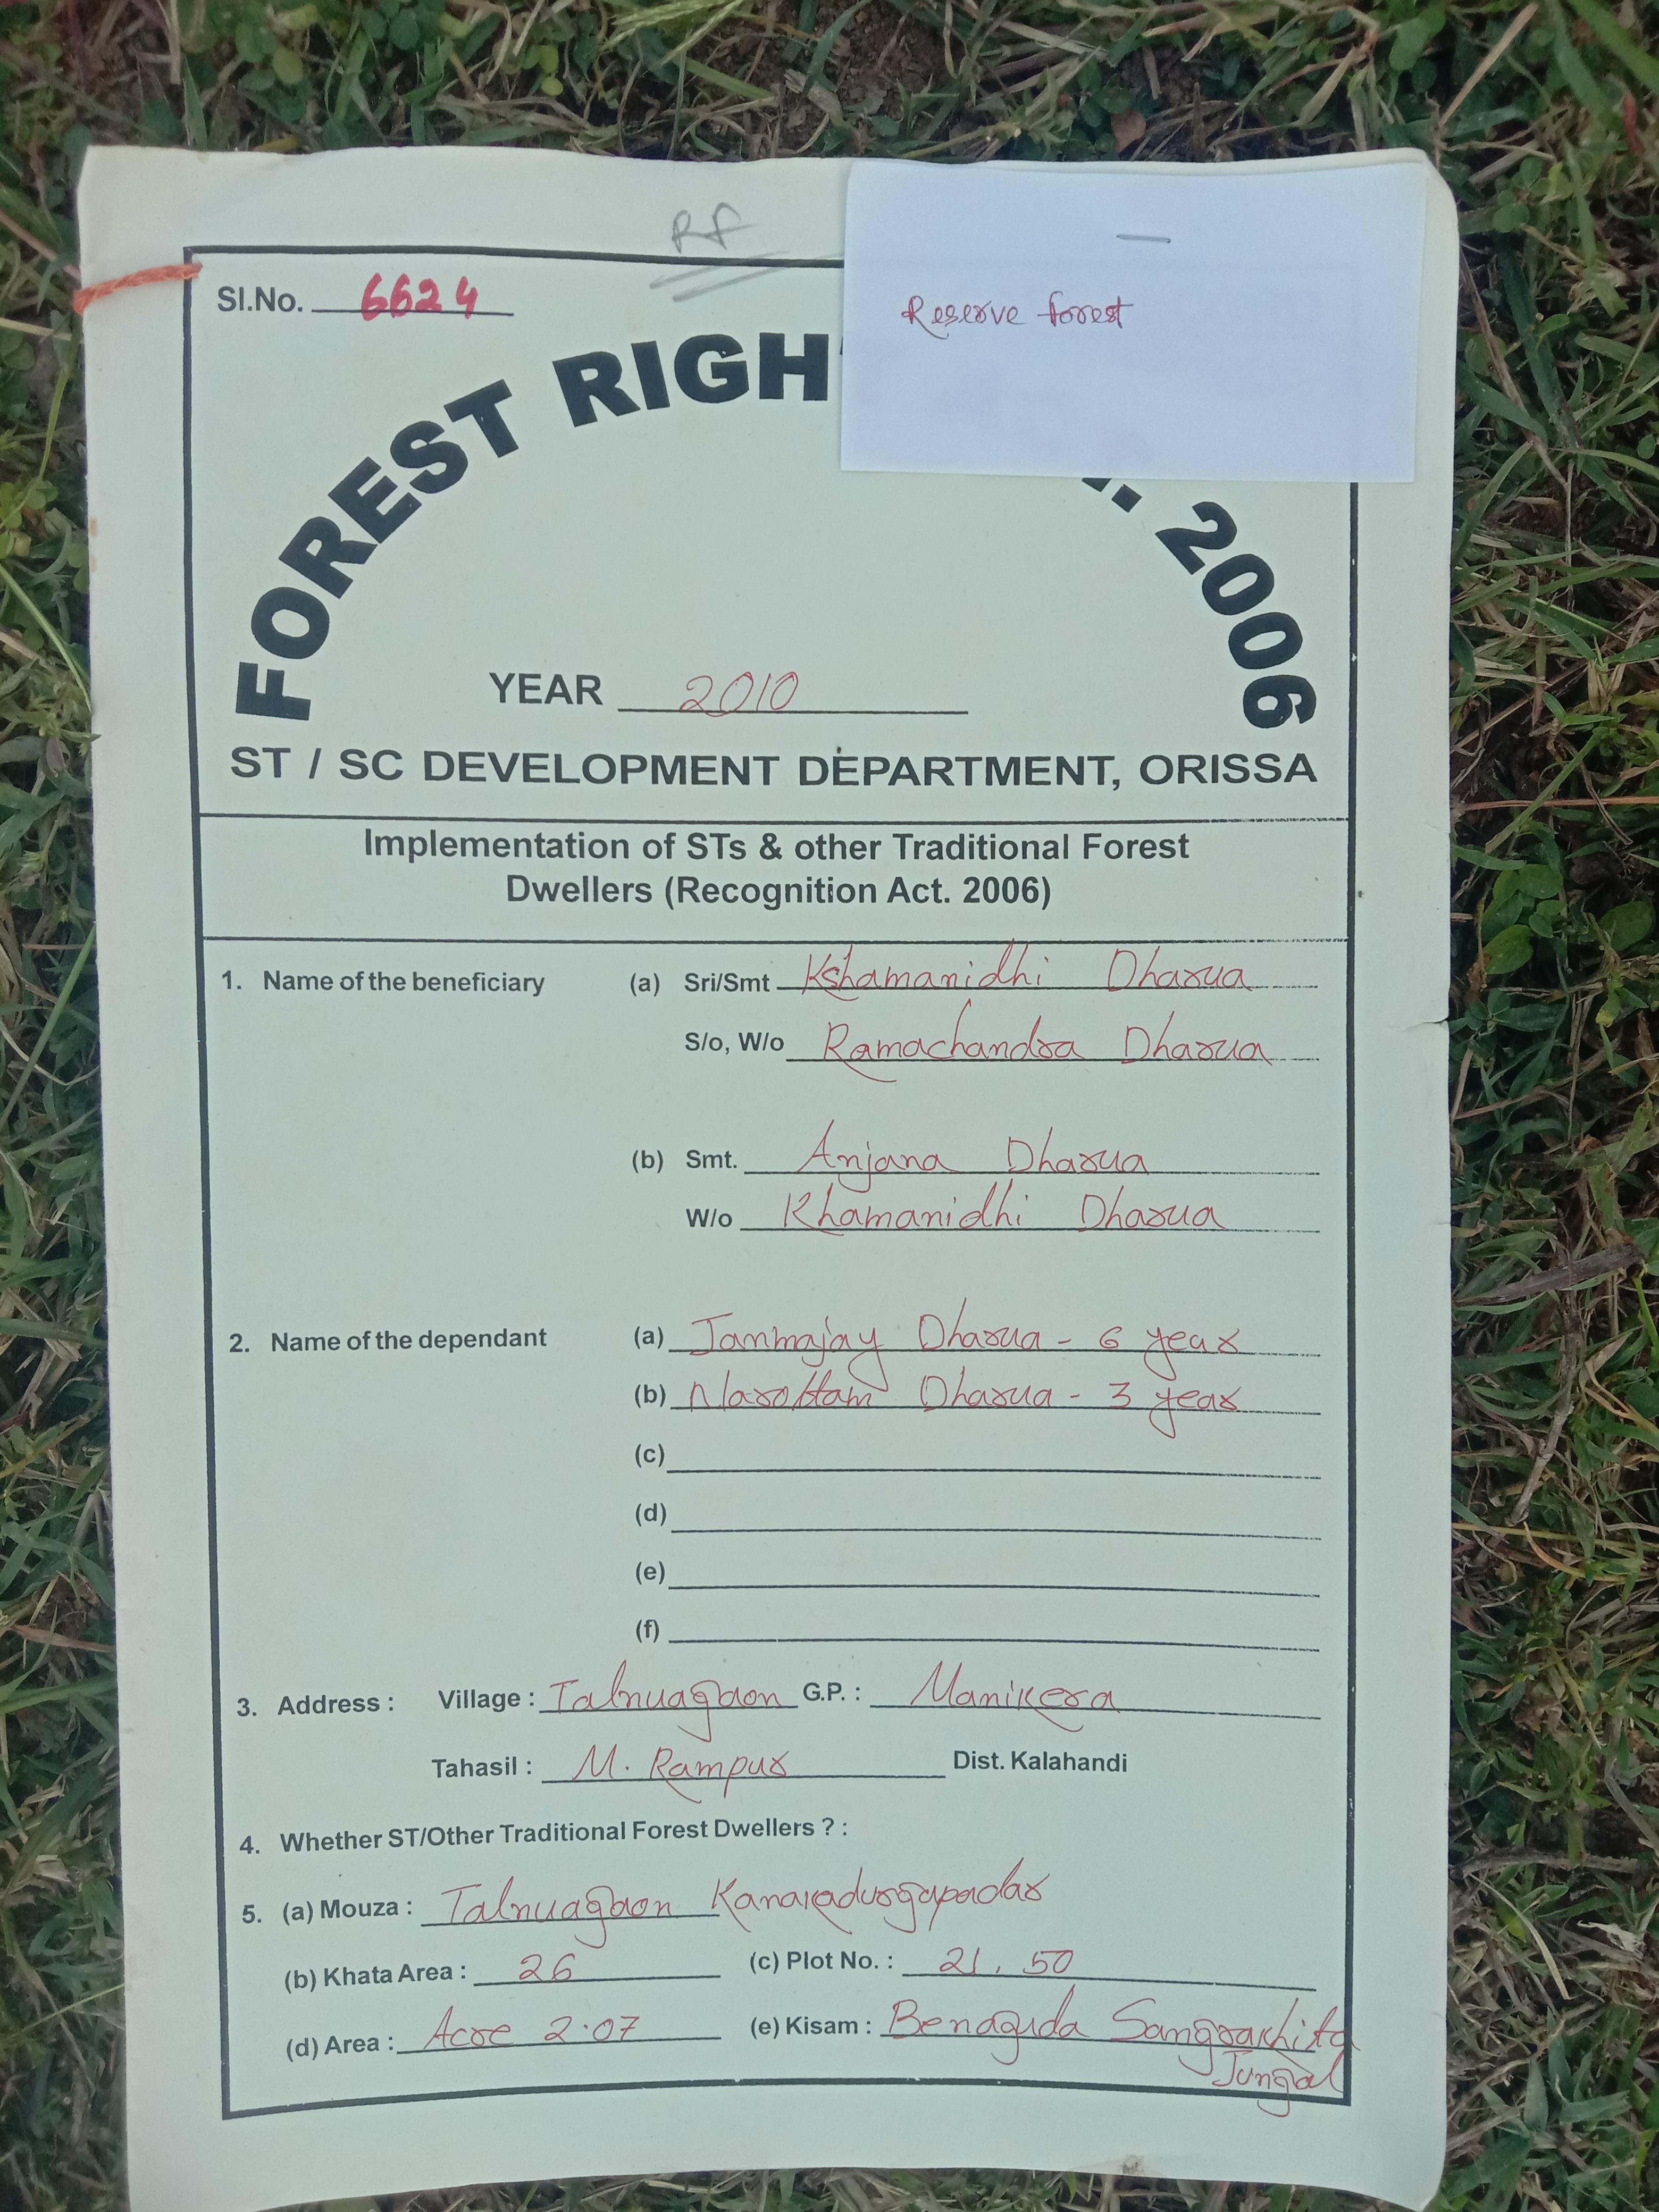 RF
Reserve forest
Sl.No. 6624
FOREST RIGH . 2006
YEAR 2010
ST / SC DEVELOPMENT DEPARTMENT, ORISSA
Implementation of STs & other Traditional Forest
Dwellers (Recognition Act. 2006)
1. Name of the beneficiary (a) Sri/Smt Kshamanidhi Dharua
S/o, W/o Ramachandra Dharua
(b) Smt. Anjana Dharua
W/o Khamanidhi Dharua
2. Name of the dependant (a) Janmajay Dharua - 6 year
(b) Narottam Dharua - 3 year
(c)
(d)
(e)
(f)
3. Address : Village : Talnuagaon G.P. : Manikera
Tahasil : M. Rampur Dist. Kalahandi
4. Whether ST/Other Traditional Forest Dwellers ? :
5. (a) Mouza : Talnuagaon Kanakadurgapadar
(b) Khata Area : 26 (c) Plot No. : 21, 50
(d) Area : Acre 2.07 (e) Kisam : Benaguda Sangrakhita
Jungal